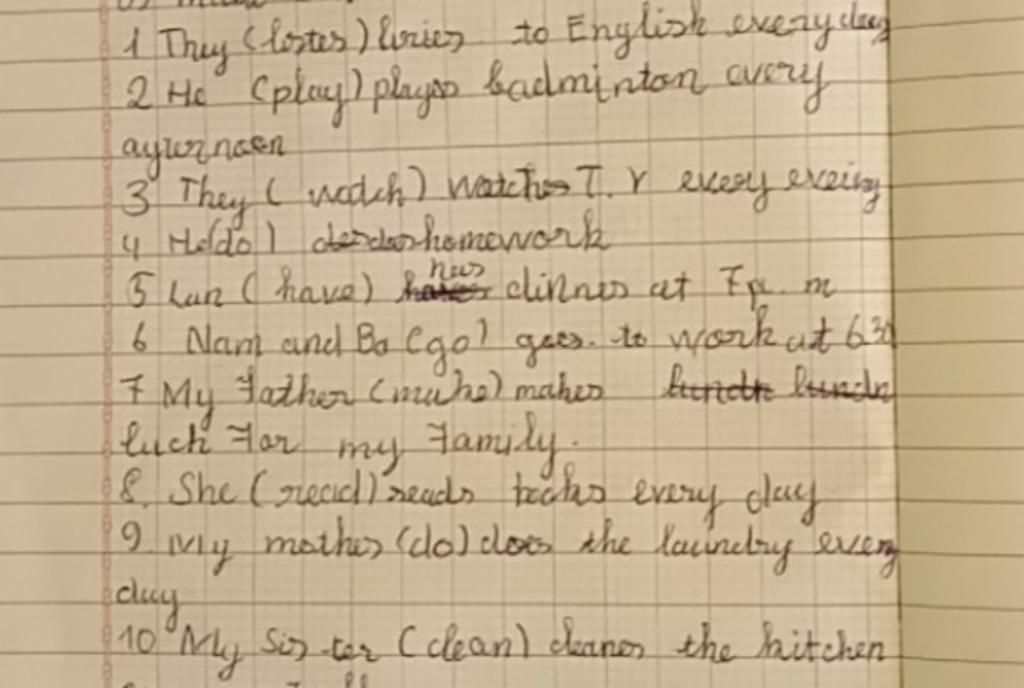 1 They (listen) to English everyday
2 He (play) plays badminton every
3 They ( watch) watches T. V every
4 He(do) homework
5 Lan ( have) has dinner at 7 p. m
6 Nam and Ba (go) goes to work at 6 30
7 My Father (make) makes
luch For my Family.
8. She ( read) reads books every day
9 My mother (do) does the laundry every
day
10 My Sister (clean) cleans the kitchen